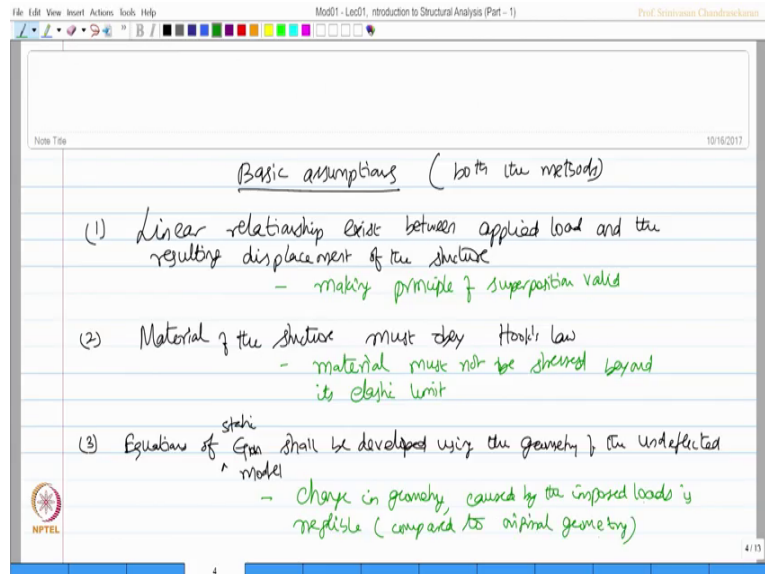 File Edit View Insert Actions Tools Help
Mod01 - Lec01, ntroduction to Structural Analysis (Part – 1)
Prof. Srinivasan Chandrasekaran
B I
Note Title
10/16/2017
Basic assumptions (both the methods)
(1) Linear relationship exist between applied load and the
resulting displacement of the structure
- making principle of superposition valid
(2) Material of the structure must obey Hook's law
- material must not be stressed beyond
its elastic limit
static
(3) Equations of Eqm shall be developed using the geometry of the undeflected
^ model
- change in geometry, caused by the imposed loads is
neglible (compared to original geometry)
NPTEL
4 / 13
4